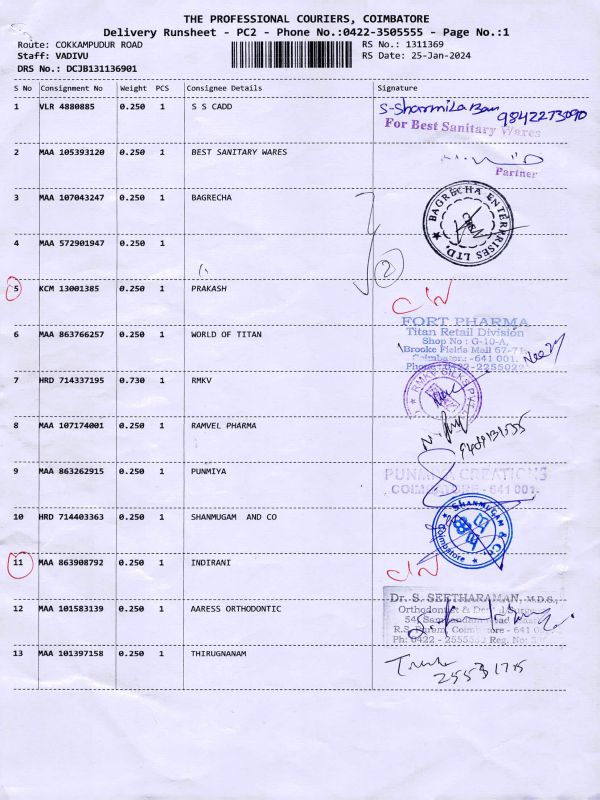 THE PROFESSIONAL COURIERS, COIMBATORE
Delivery Runsheet - PC2 - Phone No.:0422-3505555 - Page No.:1
Route: COKKAMPUDUR ROAD RS No.: 1311369
Staff: VADIVU RS Date: 25-Jan-2024
DRS No.: DCJB131136901
S No Consignment No Weight PCS Consignee Details Signature
1 VLR 4880885 0.250 1 S S CADD
9842273090
For Best Sanitary Wares
2 MAA 105393120 0.250 1 BEST SANITARY WARES
Partner
3 MAA 107043247 0.250 1 BAGRECHA
BAGRECHA ENTERPRISES LTD.
4 MAA 572901947 0.250 1
2
5 KCM 13001385 0.250 1 PRAKASH
FORT PHARMA
Titan Retail Division
6 MAA 863766257 0.250 1 WORLD OF TITAN
Shop No : G-10-A,
Brooke Fields Mall 67-71
Coimbatore -641 001.
Phone : 0422-225502
7 HRD 714337195 0.730 1 RMKV
RMKV SILKS
8 MAA 107174001 0.250 1 RAMVEL PHARMA
9 MAA 863262915 0.250 1 PUNMIYA
PUNMIYA CREATIONS
COIMBATORE - 641 001.
10 HRD 714403363 0.250 1 SHANMUGAM AND CO
SHANMUGAM & Co
Coimbatore
11 MAA 863908792 0.250 1 INDIRANI
12 MAA 101583139 0.250 1 AARESS ORTHODONTIC
Dr. S. SEETHARAMAN, M.D.S.,
Orthodontist & Dental Surgeon
R.S. Puram, Coimbatore - 641 0
13 MAA 101397158 0.250 1 THIRUGNANAM